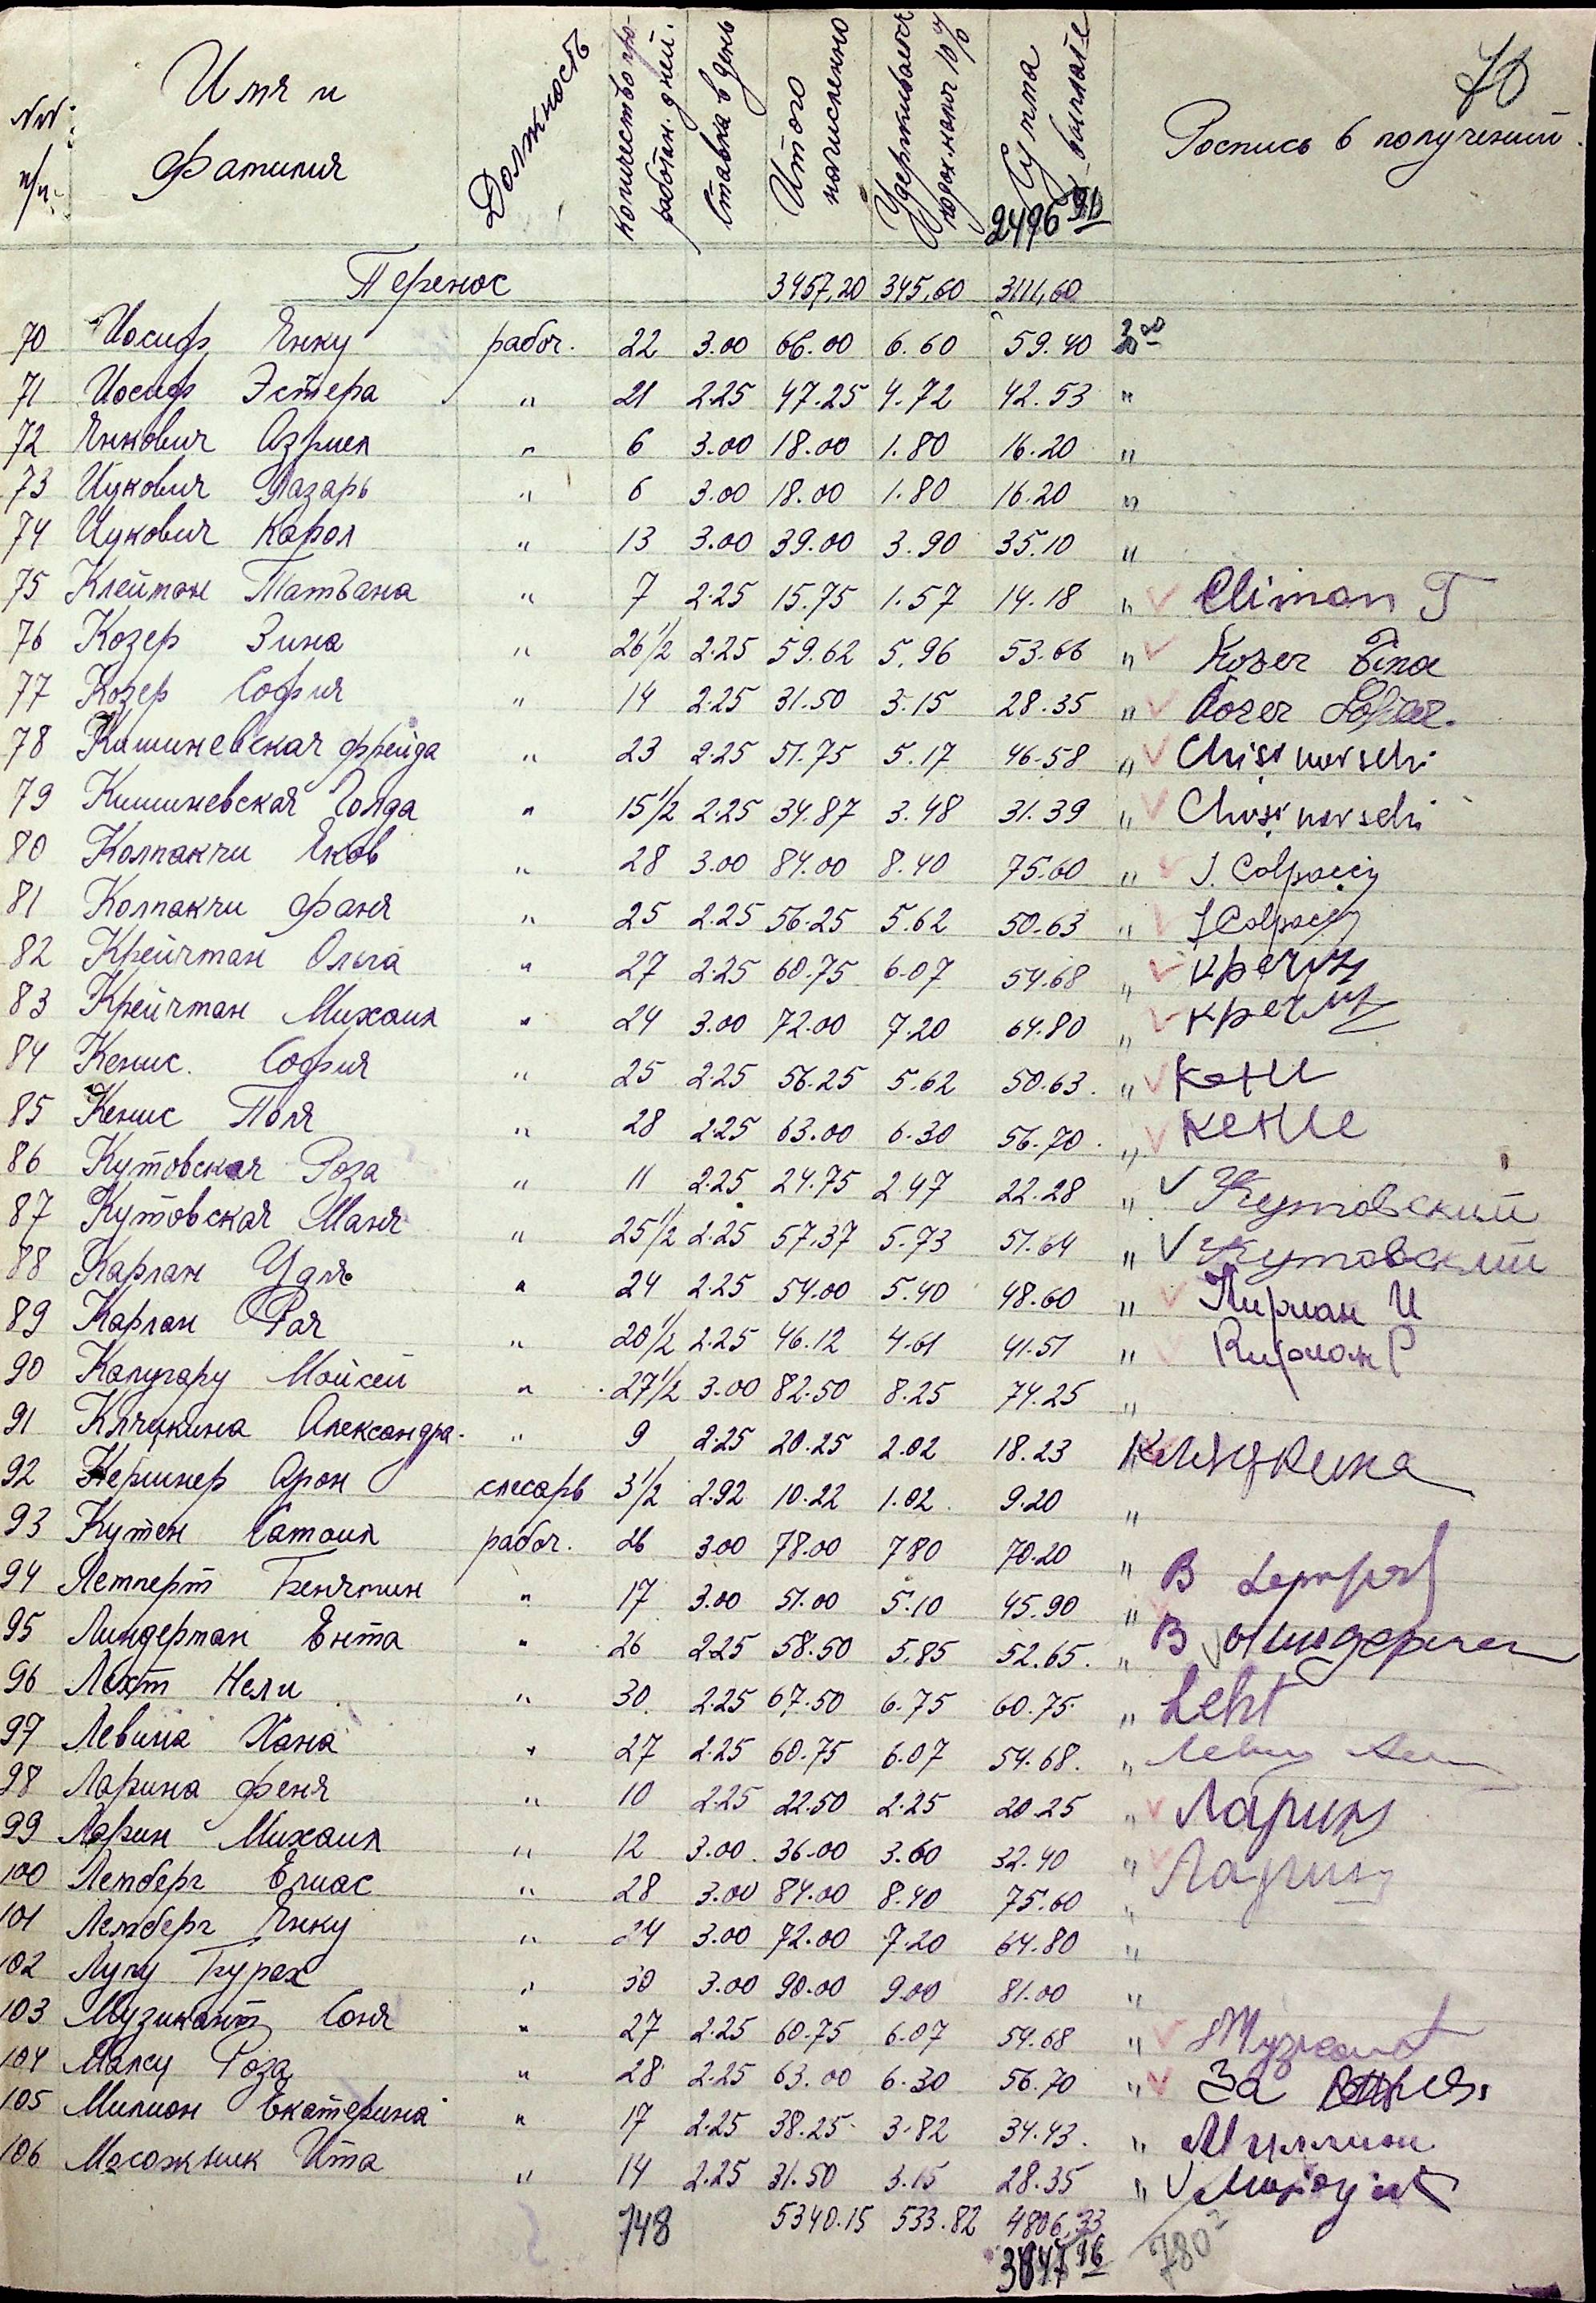 70
№№ п/п. Имя и фамилия Должность Количество рабочих дней. Ставка в день Итого начисленно Удерживается 10% Сумма к выплате Роспись в получений.
2496 90
Перенос 3457,20 345,60 3111,60
70 Иосиф Янку рабоч. 22 3.00 66.00 6.60 59.40
71 Иосиф Эстера " 21 2.25 47.25 4.72 42.53 "
72 Янкович Азриел " 6 3.00 18.00 1.80 16.20 "
73 Ицкович Лазарь " 6 3.00 18.00 1.80 16.20 "
74 Ицкович Карол " 13 3.00 39.00 3.90 35.10 "
75 Клейман Татьана " 7 2.25 15.75 1.57 14.18 " Climan T
76 Козер Зина " 26 1/2 2.25 59.62 5.96 53.66 " Kozer Zina
77 Козер София " 14 2.25 31.50 3.15 28.35 " Cozer Sofia.
78 Кишиневская Фрейда " 23 2.25 51.75 5.17 46.58 " Chisinevschi
79 Кишиневская Голда " 15 1/2 2.25 34.87 3.48 31.39 " Chisinevschi
80 Колпакчи Яков " 28 3.00 84.00 8.40 75.60 " J. Colpacci
81 Колпакчи Фаня " 25 2.25 56.25 5.62 50.63 " f Colpacci
82 Крейчман Ольга " 27 2.25 60.75 6.07 54.68 "
83 Крейчман Михаил " 24 3.00 72.00 7.20 64.80 "
84 Кенис. София " 25 2.25 56.25 5.62 50.63. " Кени
85 Кенис Поля " 28 2.25 63.00 6.30 56.70. " Кение
86 Кутовская Роза " 11 2.25 24.75 2.47 22.28 " Кутовский
87 Кутовская Маня " 25 1/2 2.25 57.37 5.73 51.64 " Кутовский
88 Карлан Удля " 24 2.25 54.00 5.40 48.60 "
89 Карлан Рая " 20 1/2 2.25 46.12 4.61 41.51 "
90 Калугару Мойсей " 27 1/2 3.00 82.50 8.25 74.25 "
91 Клячкина Александра. " 9 2.25 20.25 2.02 18.23 Клячкина
92 Кершнер Арон слесарь 3 1/2 2.92 10.22 1.02. 9.20 "
93 Кутен Самоил рабоч. 26 3.00 78.00 7 80 70.20 "
94 Лемперт Бенямин " 17 3.00 51.00 5.10 45.90 "
95 Линдерман Ента " 26 2.25 58.50 5,85 52.65. " Линдерман
96 Лехт Нели " 30. 2.25 67.50 6.75 60.75. " Leht
97 Левина Хана " 27 2.25 60.75 6.07 54.68. "
98 Ларина Феня " 10 2.25 22.50 2.25 20.25 " Ларин
99 Ларин Михаил " 12 3.00. 36.00 3.60 32.40 " Ларин
100 Лемберг Елиас " 28 3.00 84.00 8.40 75.60 "
101 Лемберг Янку " 24 3.00 72.00 7.20 64.80 "
102 Лупу Бурех " 30 3.00 90.00 9.00 81.00 "
103 Музикант Соня " 27 2.25 60.75 6.07 54.68 "
104 Малсу Роза " 28 2.25 63.00 6.30 56.70 " За
105 Милион Екатерина " 17 2.25 38.25 3.82 34.43. " Миллион
106 Мосожник Ита " 14 2.25 31.50 3.15 28.35 "
748 5340.15 533.82 4806,33 780
3847 96